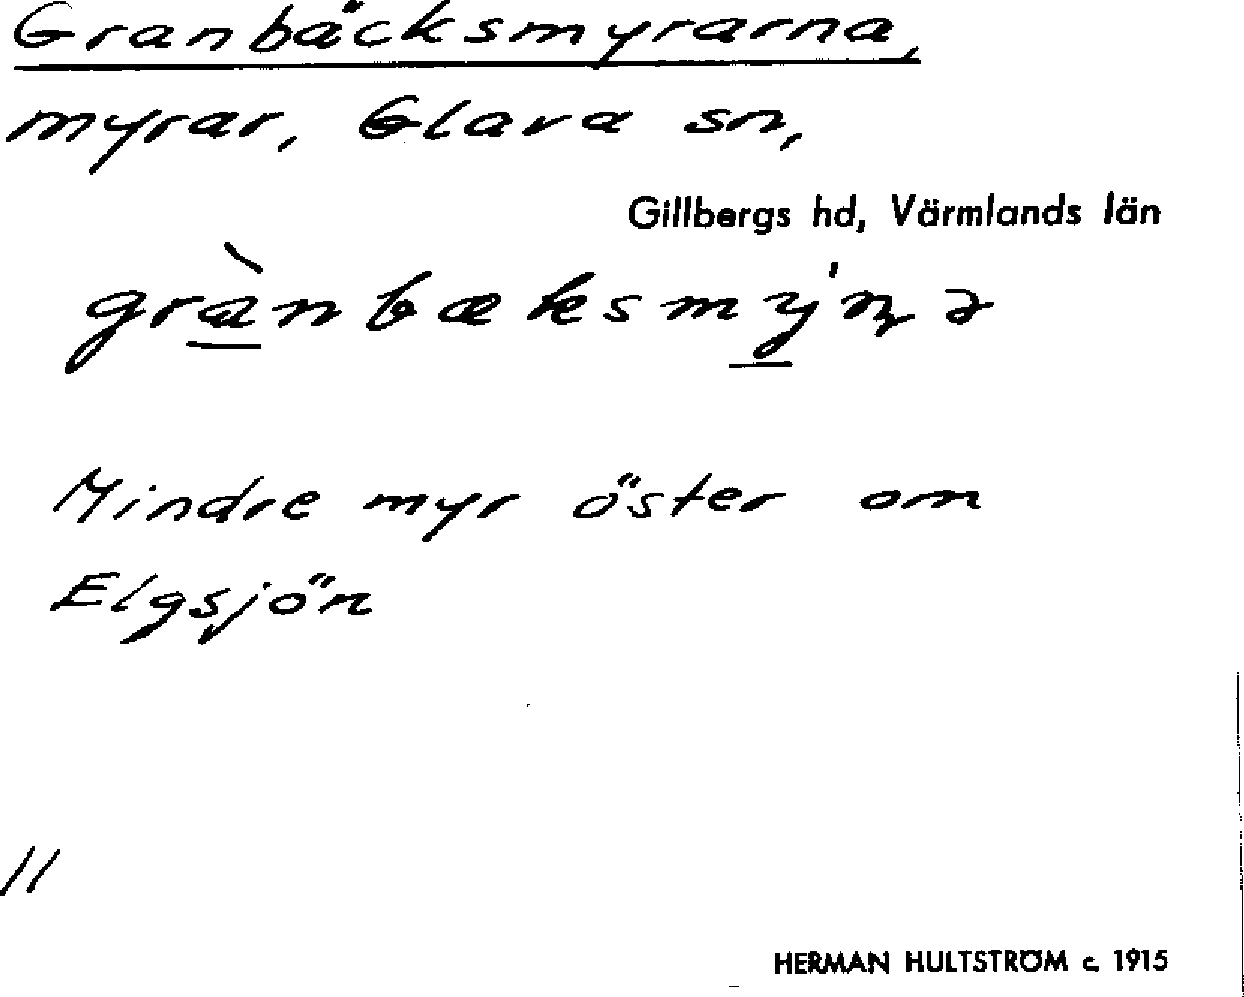 Granbäcksmyrarna,
myrar, Glava sn,
Gillbergs hd, Värmlands län
grànbæksmýn̨ə
Mindre myr öster om
Elgsjön
11
HERMAN HULTSTRÖM c. 1915